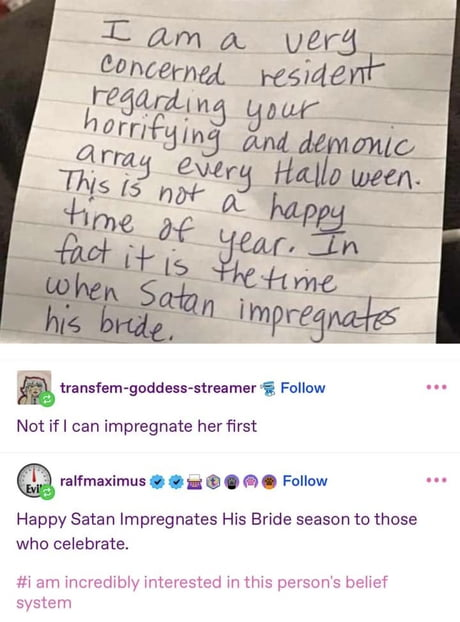 I am a very
concerned resident
regarding your
horrifying and demonic
array every Hallo ween.
This is not a happy
time of year. In
fact it is the time
when Satan impregnates
his bride.
transfem-goddess-streamer Follow
Not if I can impregnate her first
Evil
ralfmaximus Follow
Happy Satan Impregnates His Bride season to those
who celebrate.
#i am incredibly interested in this person's belief
system